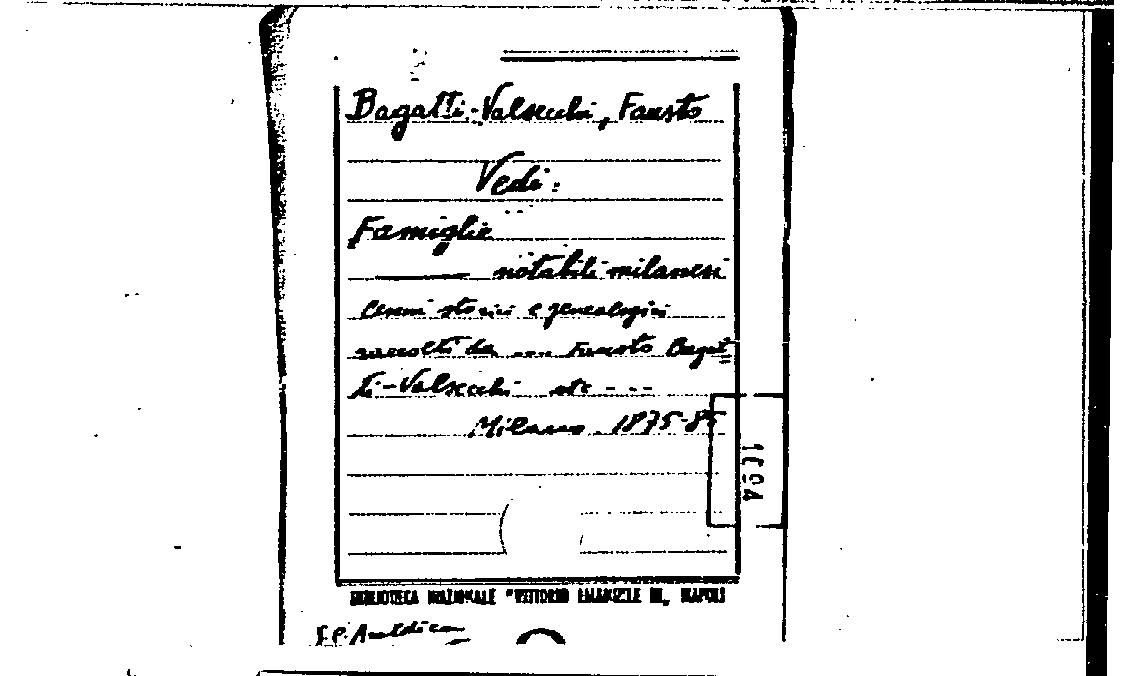 Bagatti-Valsecchi, Fausto
Vedi:
Famiglie
notabili milanesi
Cenni storici e genealogici
raccolti da .... Fausto Bagat
ti-Valsecchi etc ---
Milano 1875-85
1004
BIBLIOTECA NAZIONALE "VITTORIO EMANUELE III, NAPOLI
S.P. Araldica